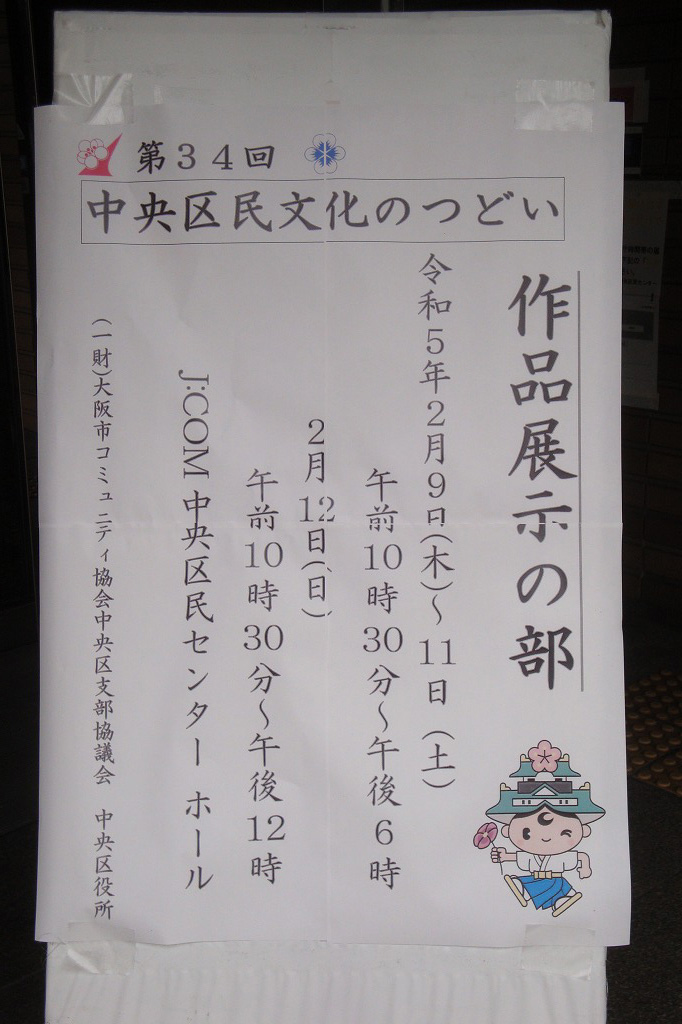 第３４回
中央区民文化のつどい
作品展示の部
令和５年２月９日(木)～11日（土）
午前10時30分～午後６時
２月12日(日)
午前10時30分～午後12時
J:COM 中央区民センター ホール
(一財)大阪市コミュニティ協会中央区支部協議会　中央区役所